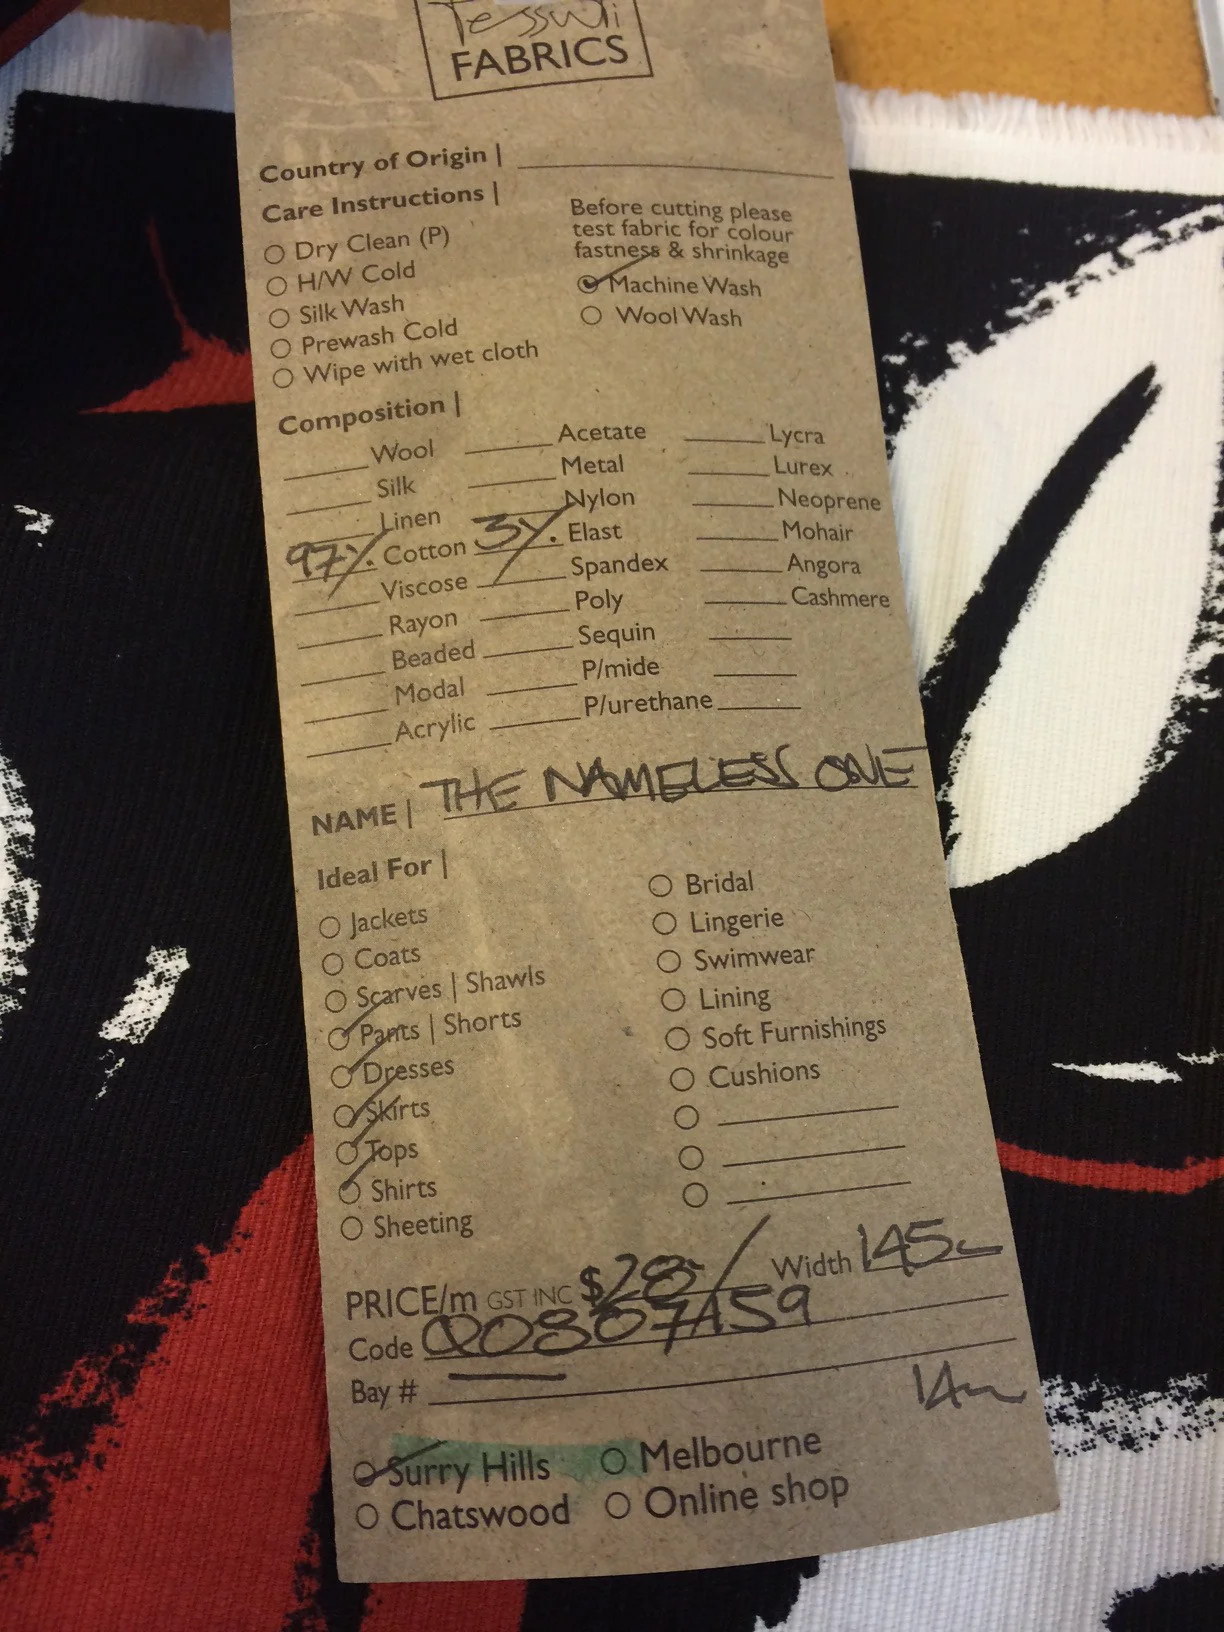 Tessuti
FABRICS
Country of Origin |
Care Instructions |
Dry Clean (P)
H/W Cold
Silk Wash
Prewash Cold
Wipe with wet cloth
Before cutting please
test fabric for colour
fastness & shrinkage
Machine Wash
Wool Wash
Composition |
Wool Acetate Lycra
Silk Metal Lurex
Linen Nylon Neoprene
97%. Cotton 3%. Elast Mohair
Viscose Spandex Angora
Rayon Poly Cashmere
Beaded Sequin
Modal P/mide
Acrylic P/urethane
NAME | THE NAMELESS ONE
Ideal For |
Jackets
Coats
Scarves | Shawls
Pants | Shorts
Dresses
Skirts
Tops
Shirts
Sheeting
Bridal
Lingerie
Swimwear
Lining
Soft Furnishings
Cushions
PRICE/m GST INC $28-/ Width 145
Code
Bay #
14m
Surry Hills Melbourne
Chatswood Online shop